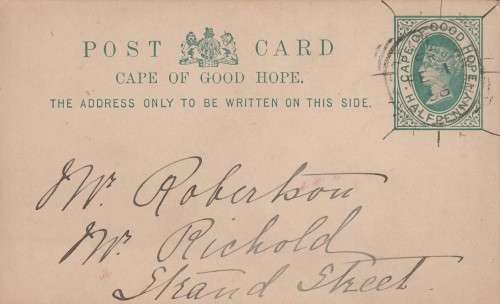 POST CARD
CAPE OF GOOD HOPE.
THE ADDRESS ONLY TO BE WRITTEN ON THIS SIDE.
CAPE OF GOOD HOPE
HALFPENNY
Mr. Robertson
Mr. Richold
Strand Street.